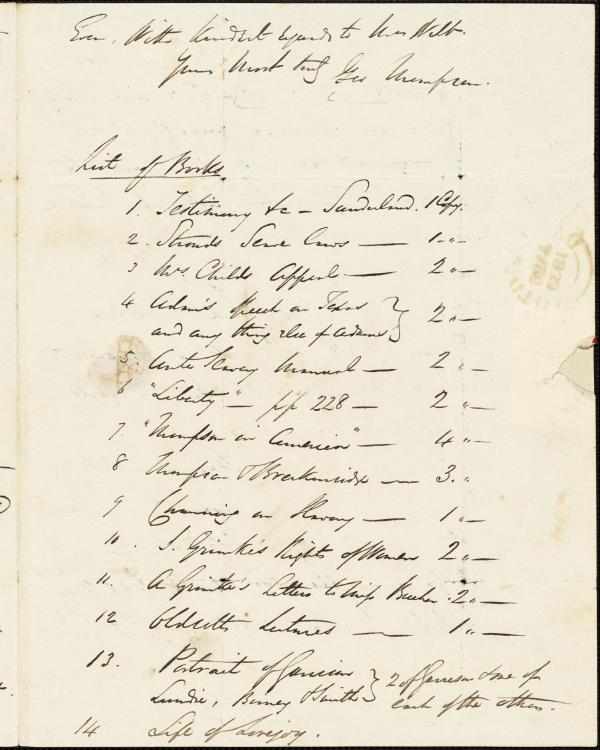 Ever, With kindest regards to Mrs Webb.
Yours Most truly Geo Thompson.
List of Books
1. Testimony &c — Sunderland. 1 Copy.
2. Strouds Slave Laws — 1 "
3 Mrs. Childs Appeal — 2 "
4 Adams Speech on Texas
and any thing else of Adams } 2 "
5. Anti Slavery Manual — 2 "
6 "Liberty" — pp 228 — 2 "
7. "Thompson in America" — 4 "
8 Thompson & Breckinridge — 3 "
9 Channing on Slavery — 1 "
10. S. Grimke's Rights of Women 2 "
11. A Grimke's Letters to Miss Beecher 2 "
12 Lectures — 1 "
13. Portrait of Garrison
Lundie, Birney & Smith } 2 of Garrison & one of
each of the others.
14 Life of Lovejoy.